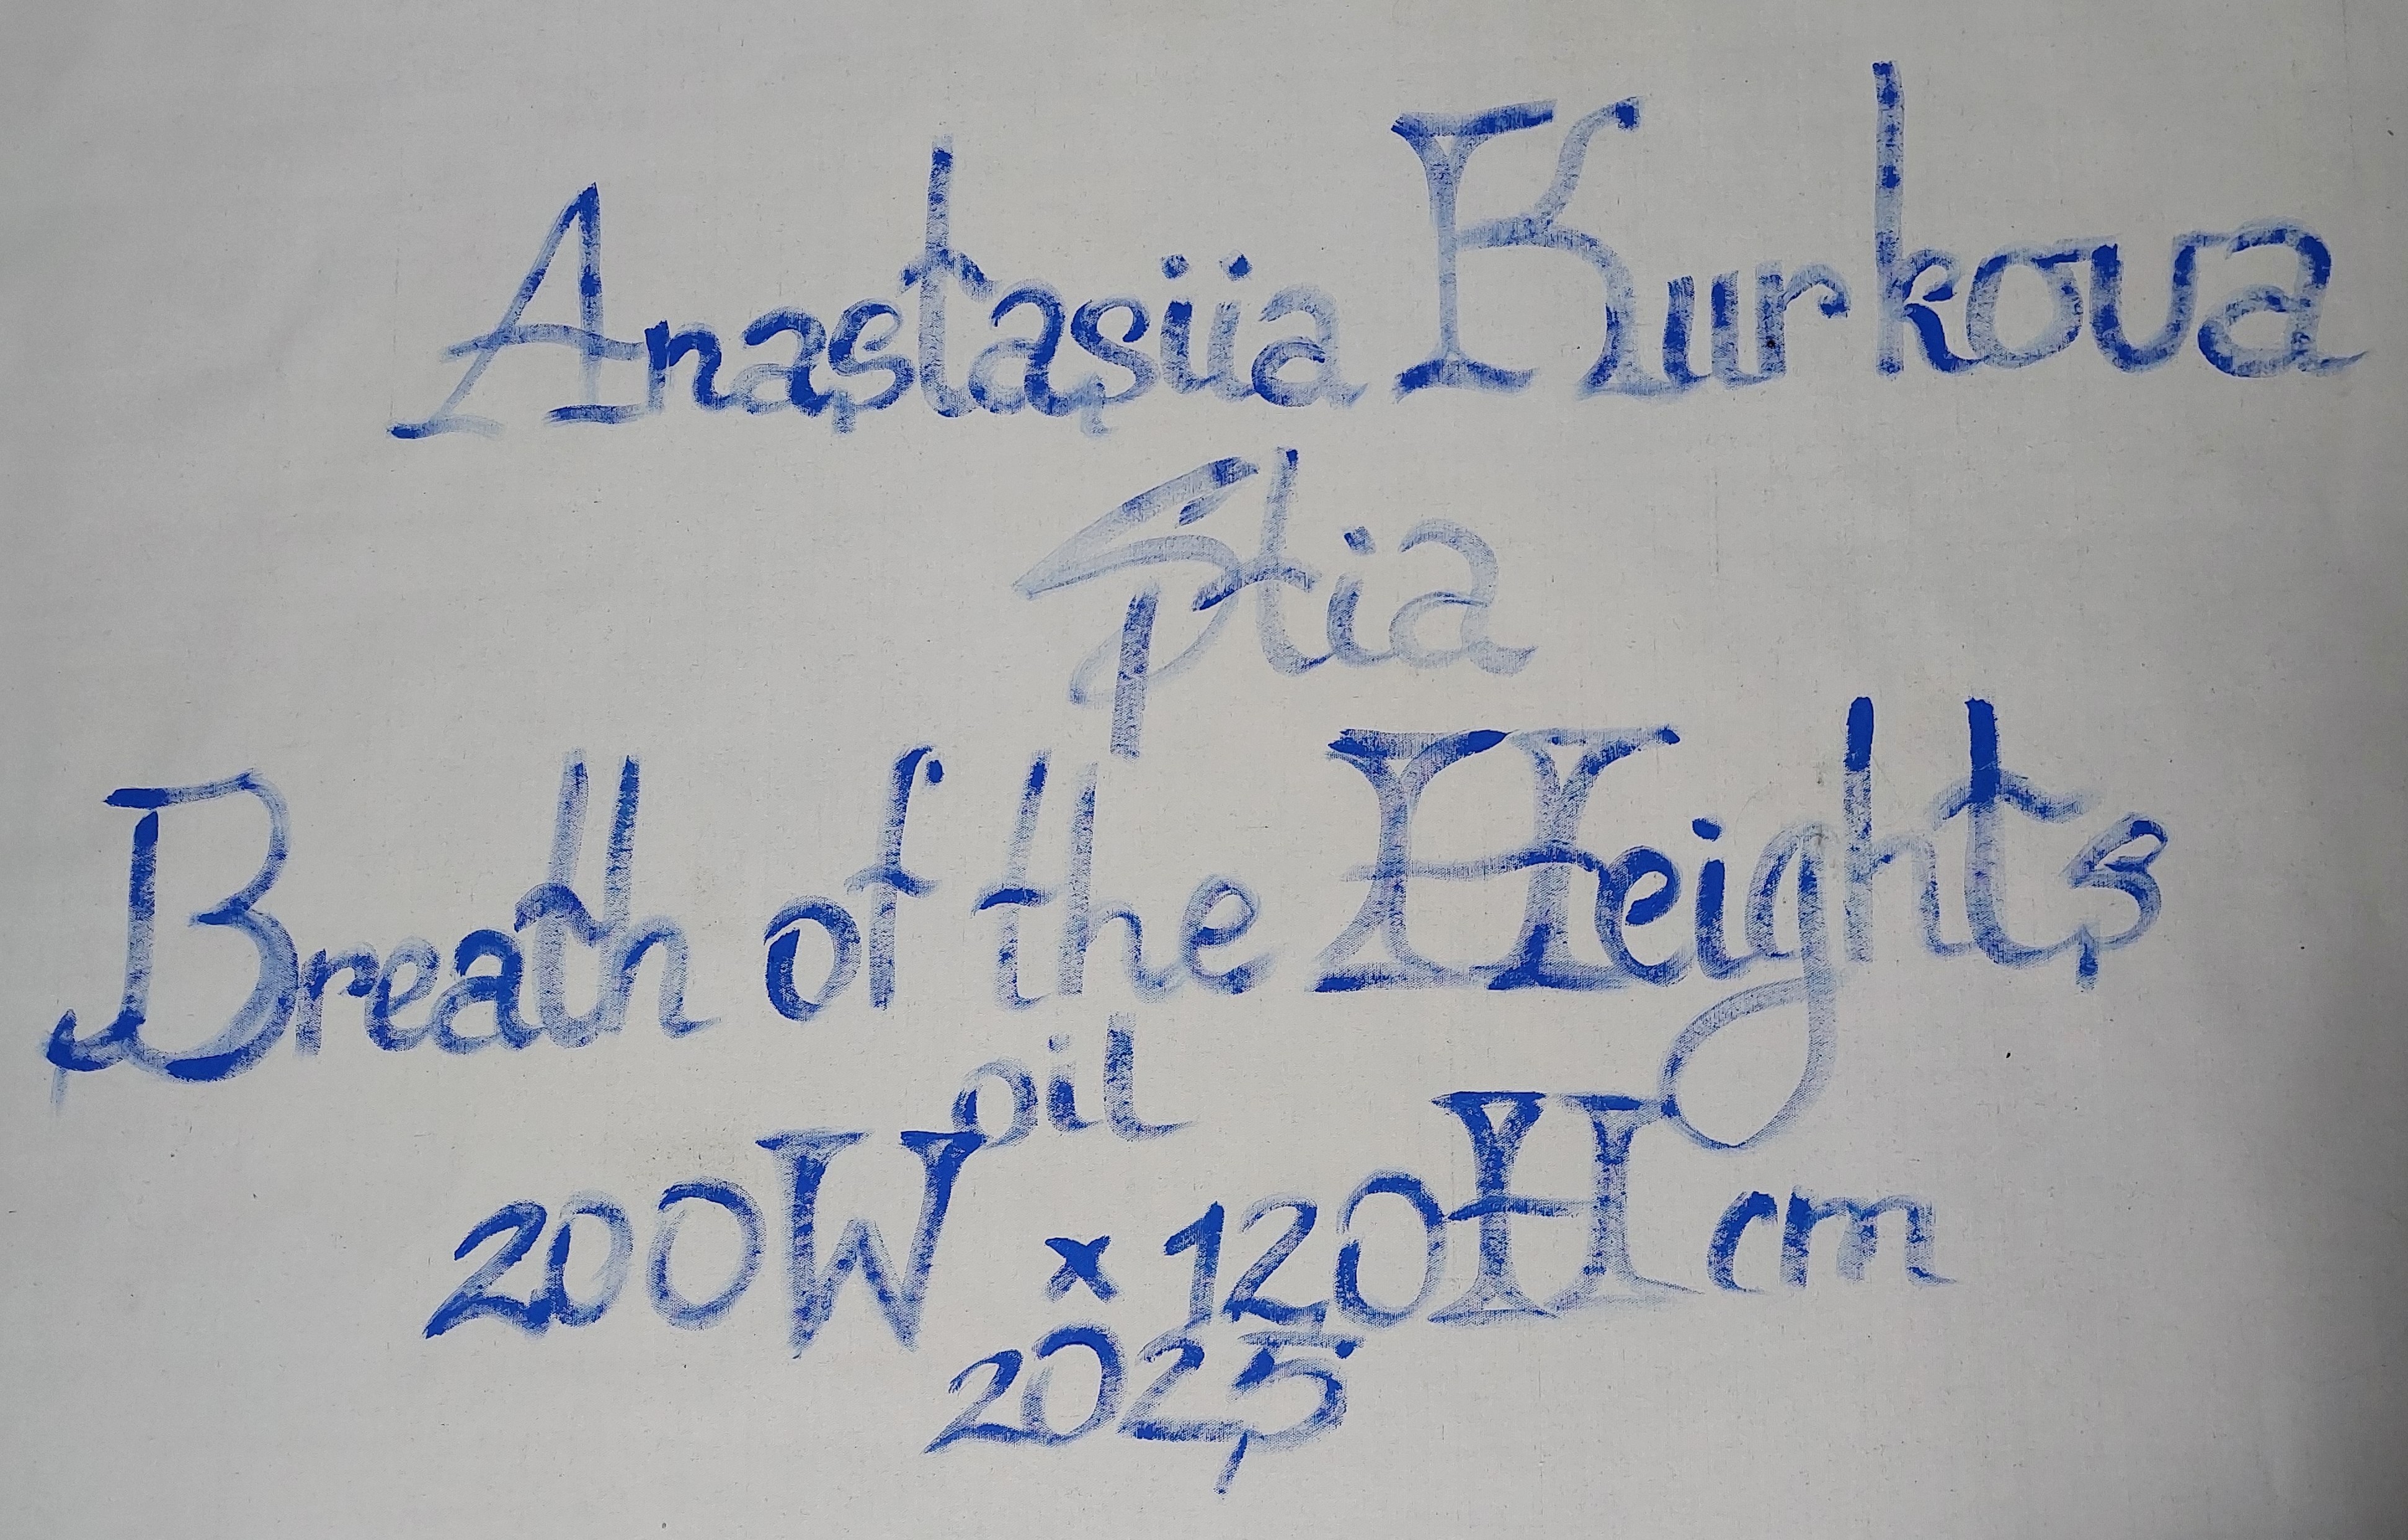 Anastasiia Kurkova
Stia
Breath of the Heights
oil
200W x 120H cm
2025